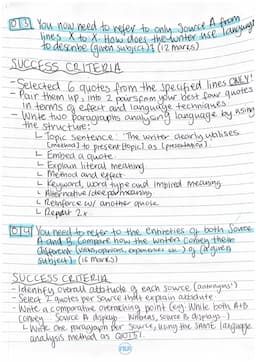 03 You now need to refer to only Source A from
lines X to X. How does the writer use language
to describe (given subject)? (12 marks)
SUCCESS CRITERIA
- Selected 6 quotes from the specified lines ONLY!
- Pair them up, into 2 pairs from your best four quotes
in terms of effect and language techniques.
- Write two paragraphs analysing language by using
the structure:
Topic sentence: The writer clearly utilises
[method] to present [topic] as [presentation].
Embed a quote
Explain literal meaning
Method and effect
Keyword, word type and implied meaning
Alternative/deeper meaning
Reinforce w/ another quote
Repeat 2x
04 You need to refer to the entireties of both Source
A and B. Compare how the writers convey their
different (views, opinions, experiences etc.) of (given
subject). (16 marks)
SUCCESS CRITERIA
- Identify overall attitude of each source
- Select 2 quotes per source that explain attitude
- Write a comparative overarching point (e.g. While both A+B
convey Source A display Whereas, Source B displays
Write one paragraph per source, using the SAME language
analysis method as Q3